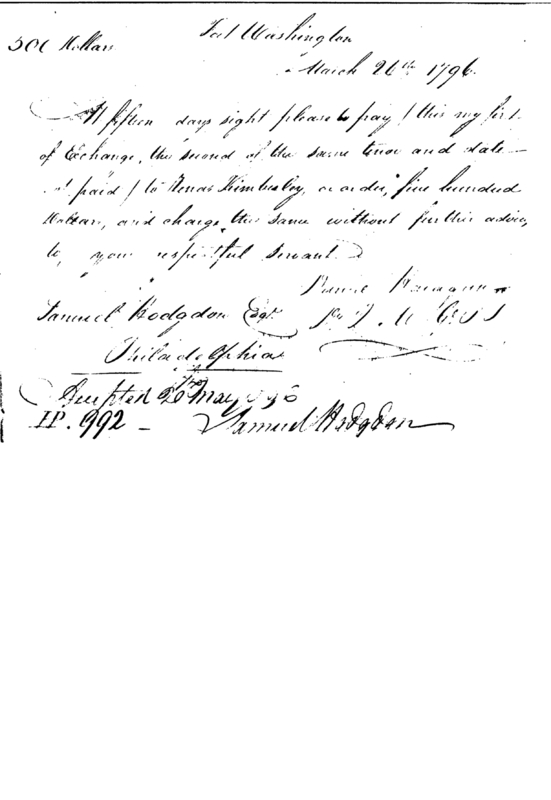 500 Dollars
Fort Washington
March 26th 1796.
At fifteen days sight please to pay (this my first
of Exchange, the second of the same tenor and date
not paid) to Zenas Kimberley, or order, five hundred
Dollars, and charge the same without further advice,
to, your respectful servant.
Samuel Hodgdon Esqr.
Philadelphia
Accepted 20 May 1796
992 —
Samuel Hodgdon